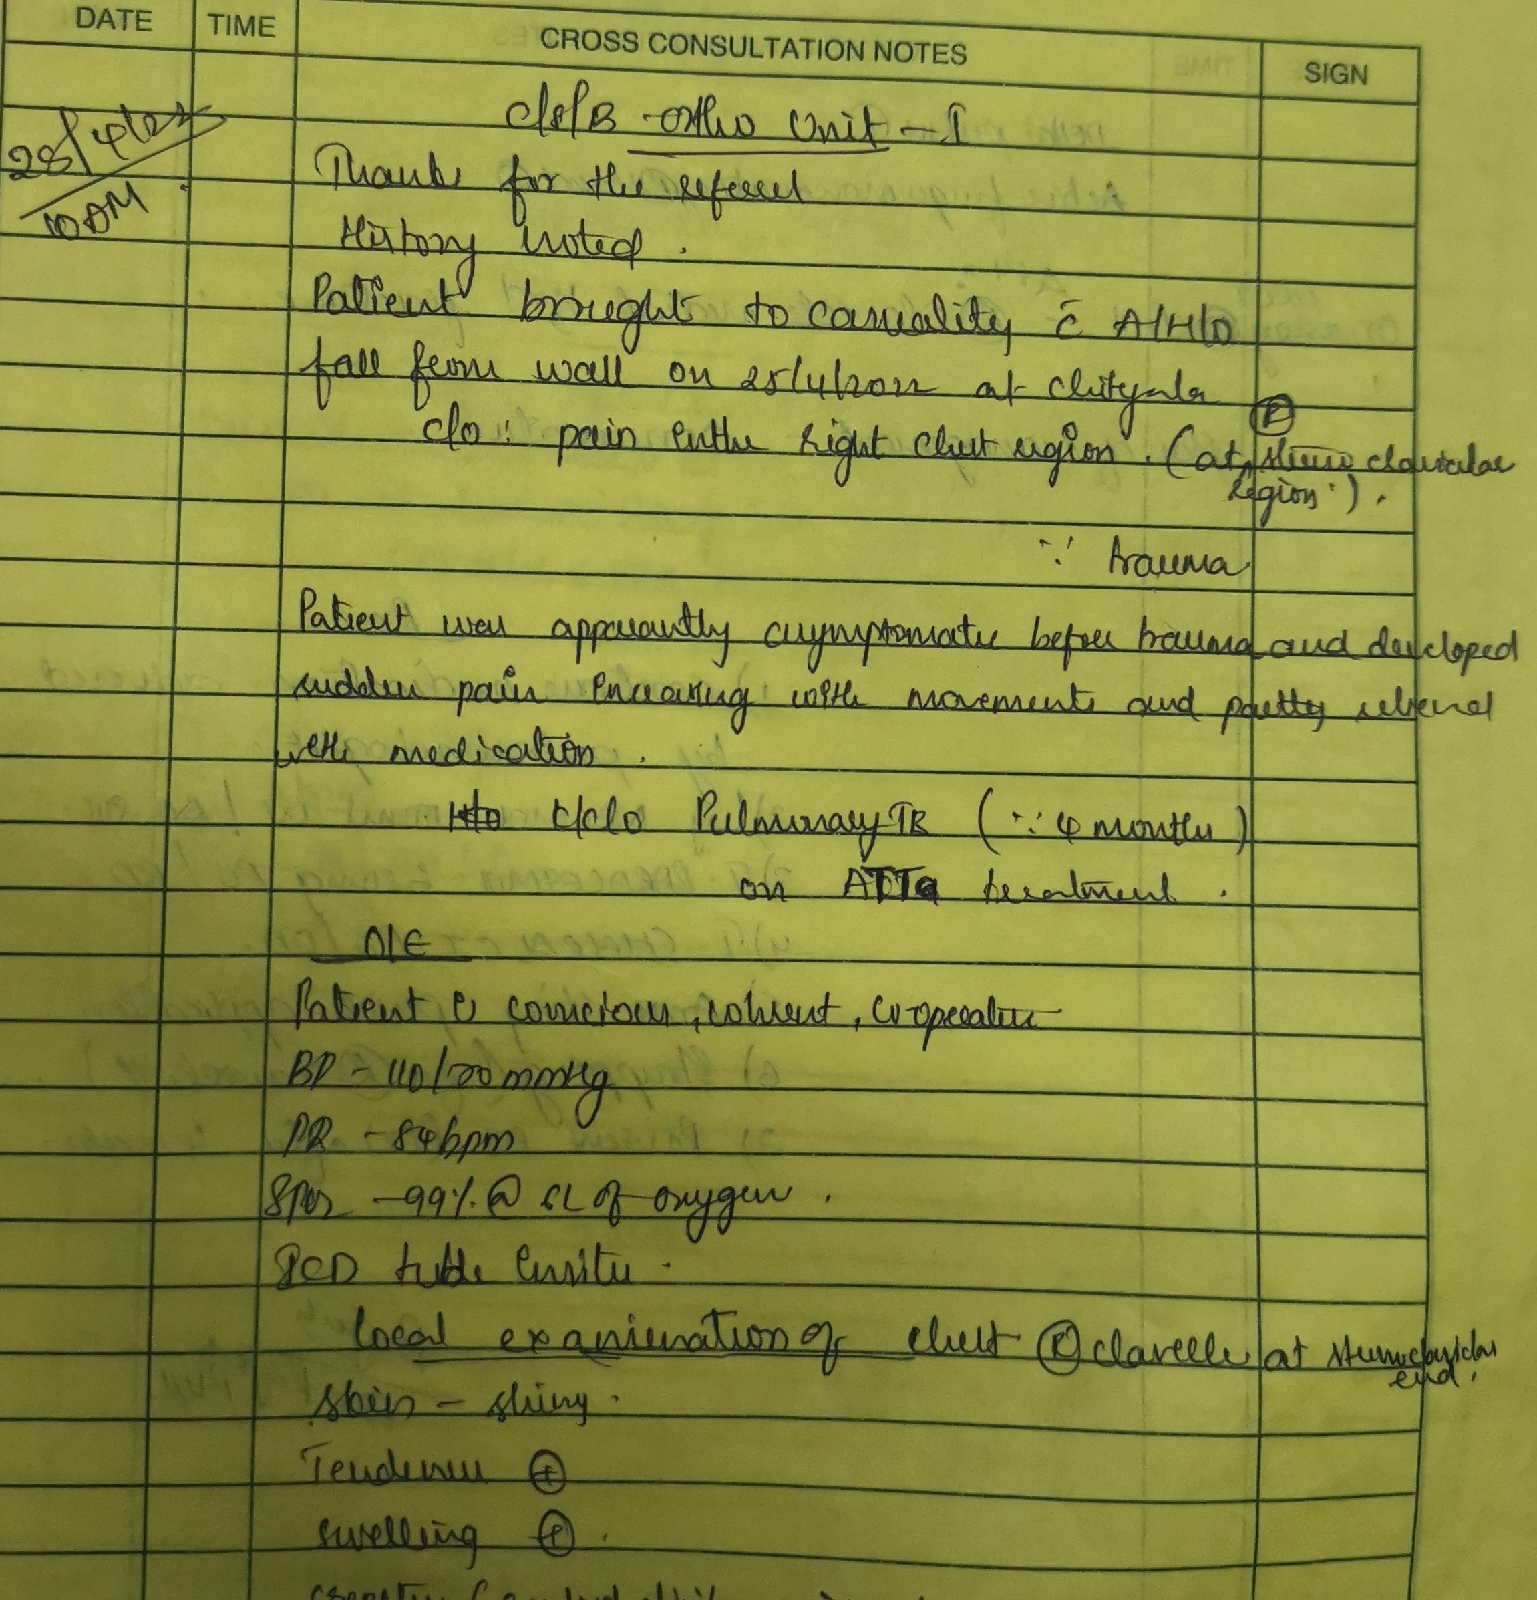 DATE TIME CROSS CONSULTATION NOTES SIGN
28/4/22
10AM
C/S/B - Ortho Unit - I
Thanks for the referel
History noted.
Patient brought to casuality c̄ A/H/O
fall from wall on 25/4/2022 at chityala
c/o: pain in the right chest region. (at Ⓡ sterno clavicular
region).
∵ trauma
Patient was apparantly asymptomatic before trauma and developed
sudden pain increasing with movements and partly relieved
with medication.
k/c/o Pulmonary TB (∵ 4 months)
on ATT treatment.
O/E
Patient is conscious, coherent, co-operative
BP - 110/70 mmHg
PR - 84 bpm
SPO2 - 99% @ 6L of oxygen.
ICD tube insitu.
local examination of chest Ⓡ clavicle at sternoclavicular
end.
Skin - shiny.
Tenderness ⊕
swelling ⊕.